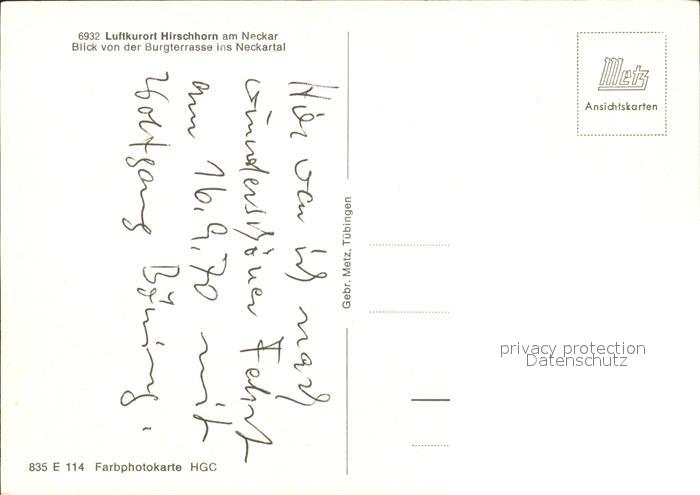 6932 Luftkurort Hirschhorn am Neckar
Blick von der Burgterrasse ins Neckartal
Hier war ich nach
wunderschöner Fahrt
am 16.9.70 mit
Wolfgang Böning.
Gebr. Metz, Tübingen
Metz
Ansichtskarten
privacy protection
Datenschutz
835 E 114 Farbphotokarte HGC